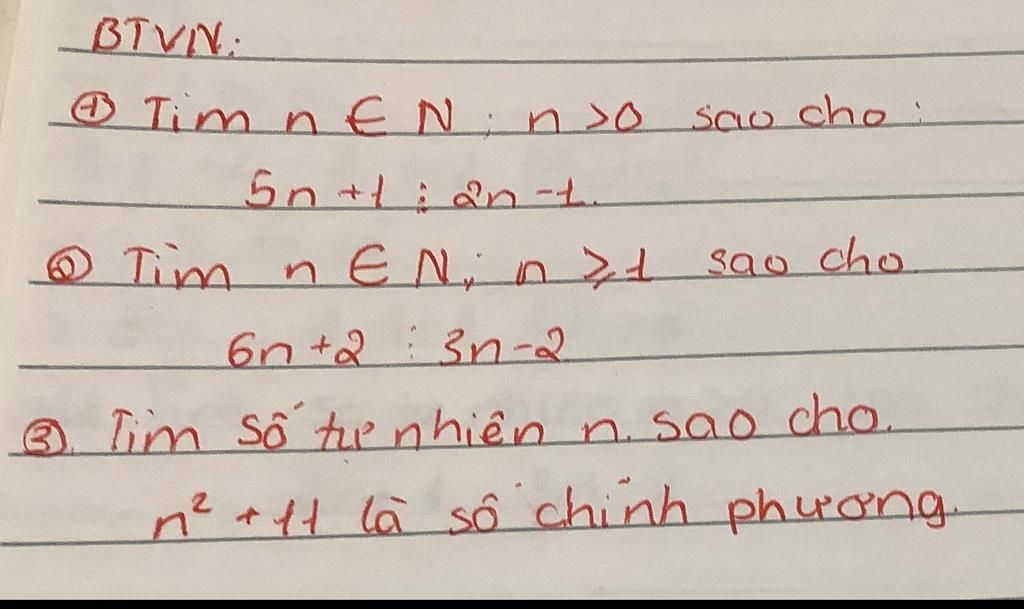 BTVN:
① Tìm n ∈ N; n >0 sao cho:
5n +1 ⋮ 2n -1.
② Tìm n ∈ N; n ⩾1 sao cho
6n +2 ⋮ 3n -2
③. Tìm số tự nhiên n. sao cho.
n² + 11 là số chính phương.